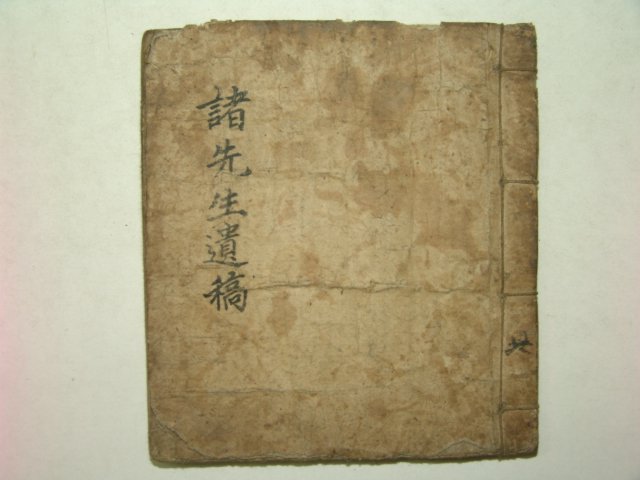 諸先生遺稿
共